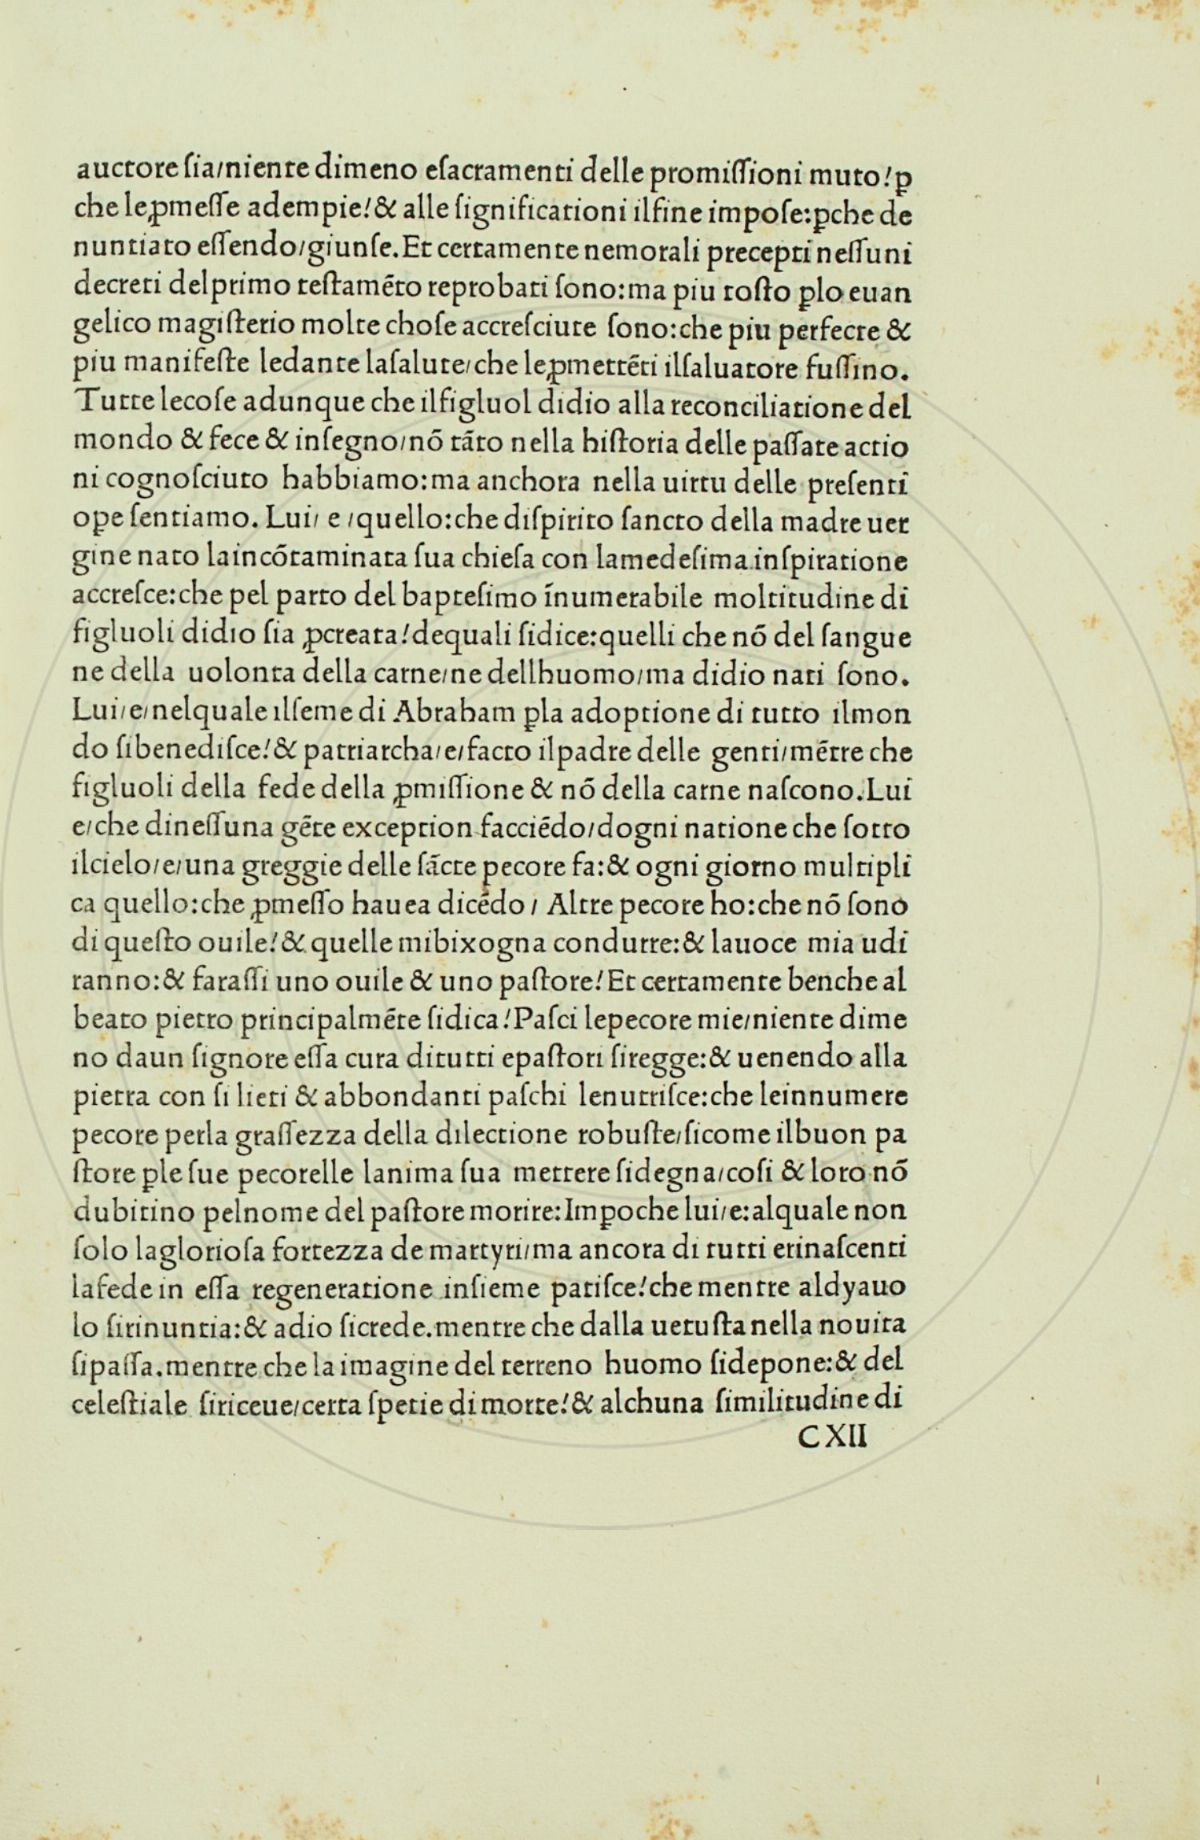 auctore ſia/niente dimeno eſacramenti delle promiſſioni muto!ꝑ
che leꝓmeſſe adempie!& alle ſignificationi ilfine impoſe:ꝑche de
nuntiato eſſendo/giunſe.Et certamente nemorali precepti neſſuni
decreti delprimo teſtamēto reprobati ſono:ma piu toſto ꝑlo euan
gelico magiſterio molte choſe accreſciute ſono:che piu perfecte &
piu manifeſte ledante laſalute/che leꝓmettēti ilſaluatore fuſſino.
Tutte lecoſe adunque che ilfigluol didio alla reconciliatione del
mondo & fece & inſegno/nō tāto nella hiſtoria delle paſſate actio
ni cognoſciuto habbiamo:ma anchora nella uirtu delle preſenti
oꝑe ſentiamo. Lui/ e /quello:che diſpirito ſancto della madre uer
gine nato laincōtaminata ſua chieſa con lamedeſima inſpiratione
accreſce:che pel parto del bapteſimo īnumerabile moltitudine di
figluoli didio ſia ꝓcreata!dequali ſidice:quelli che nō del ſangue
ne della uolonta della carne/ne dellhuomo/ma didio nati ſono.
Lui/e/nelquale ilſeme di Abraham ꝑla adoptione di tutto ilmon
do ſibenediſce!& patriarcha/e/facto ilpadre delle genti/mētre che
figluoli della fede della ꝓmiſſione & nō della carne naſcono.Lui
e/che dineſſuna gēte exception facciēdo/dogni natione che ſotto
ilcielo/e/una greggie delle ſācte pecore fa:& ogni giorno multipli
ca quello:che ꝓmeſſo hauea dicēdo/ Altre pecore ho:che nō ſono
di queſto ouile!& quelle mibixogna condurre:& lauoce mia udi
ranno:& faraſſi uno ouile & uno paſtore!Et certamente benche al
beato pietro principalmēte ſidica!Paſci lepecore mie/niente dime
no daun ſignore eſſa cura ditutti epaſtori ſiregge:& uenendo alla
pietra con ſi lieti & abbondanti paſchi lenutriſce:che leinnumere
pecore perla graſſezza della dilectione robuſte/ſicome ilbuon pa
ſtore ꝑle ſue pecorelle lanima ſua mettere ſidegna/coſi & loro nō
dubitino pelnome del paſtore morire:Impoche lui/e:alquale non
ſolo laglorioſa fortezza de martyri/ma ancora di tutti erinaſcenti
lafede in eſſa regeneratione inſieme patiſce!che mentre aldyauo
lo ſirinuntia:& adio ſicrede.mentre che dalla uetuſta nella nouita
ſipaſſa.mentre che la imagine del terreno huomo ſidepone:& del
celeſtiale ſiriceue/certa ſpetie di morte!& alchuna ſimilitudine di
CXII